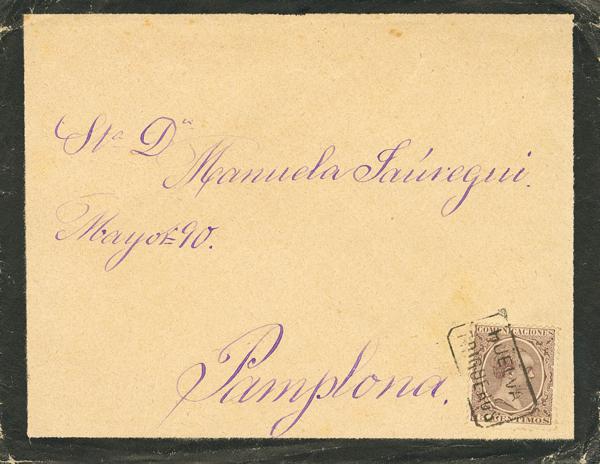 Sta Da
Manuela Jáuregui.
Mayor 90.
Pamplona.
COMUNICACIONES
HUELVA
CENTIMOS